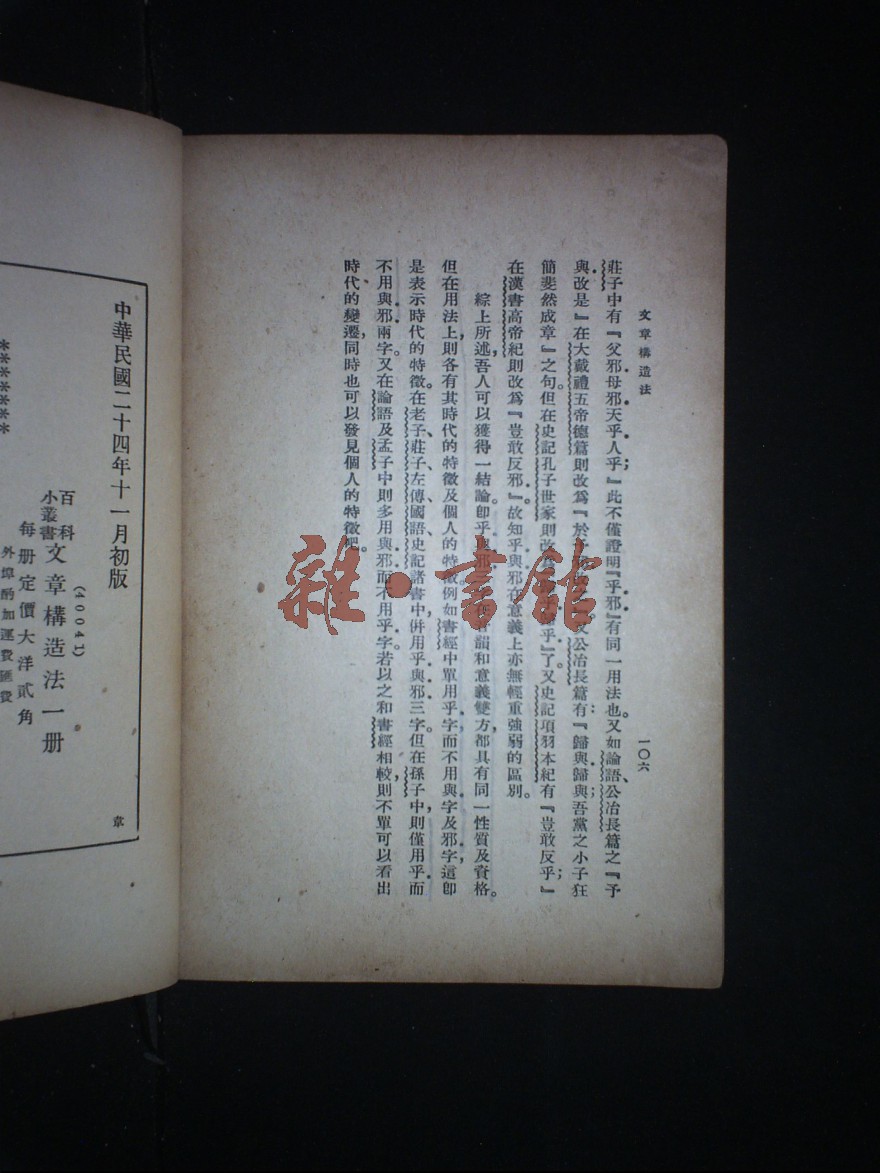 文章構造法
一〇六
莊子中有『父邪母邪天乎人乎；』此不僅證明『乎邪』有同一用法也。又如論語、公冶長篇之『予
與改是』在大戴禮五帝德篇則改爲『於予 公冶長篇有『歸與歸與吾黨之小子狂
簡斐然成章』之句。但在史記孔子世家則改爲 乎』了。又史記項羽本紀有『豈敢反乎；』
在漢書高帝紀則改爲『豈敢反邪』。故知乎與邪在意義上亦無輕重強弱的區別。
綜上所述，吾人可以獲得一結論，卽乎與邪 韻和意義雙方，都具有同一性質及資格。
但在用法上則各有其時代的特徵及個人的特徵。例如書經中單用乎字而不用與字及邪字，這卽
是表示時代的特徵。在老子、莊子、左傳、國語、史記諸書中，併用乎與邪三字。但在孫子中，則僅用乎而
不用與邪兩字。又在論語及孟子中則多用與邪而不用乎字。若以之和書經相較，則不單可以看出
時代的變遷，同時也可以發見個人的特徵吧。
中華民國二十四年十一月初版
百科小叢書 文章構造法一册
(40041)
每册定價大洋貳角
外埠酌加運費匯費
章
*******
雜·書館